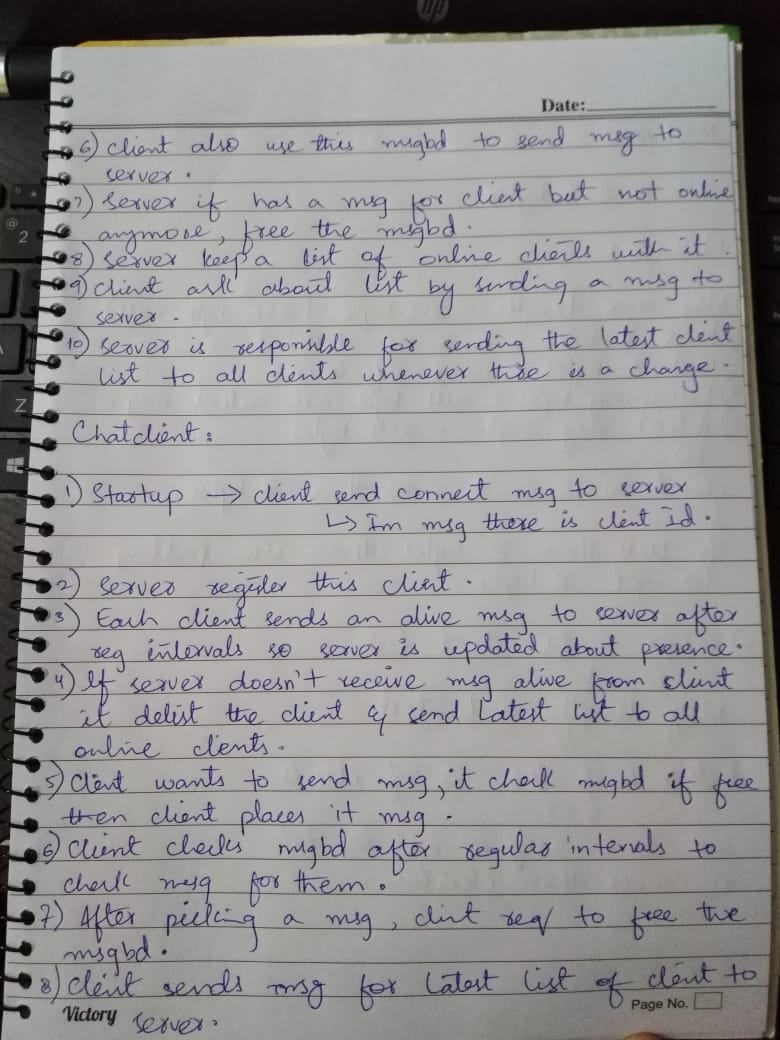 hp
Date:
6) Client also use this msgbd to send msg to
server.
7) Server if has a msg for client but not online
anymore, free the msgbd.
8) Server keep a list of online clients with it.
9) Client ask about list by sending a msg to
server.
10) Server is responsible for sending the latest client
list to all clients whenever there is a change.
Chatclient:
1) Startup → client send connect msg to server
↳ In msg there is client Id.
2) Server register this client.
3) Each client sends an alive msg to server after
reg intervals so server is updated about presence.
4) If server doesn't receive msg alive from client
it delist the client & send latest list to all
online clients.
5) Client wants to send msg, it check msgbd if free
then client places it msg.
6) Client checks msgbd after regular intervals to
check msg for them.
7) After picking a msg, clint req to free the
msgbd.
8) Client sends msg for latest list of client to
server.
Victory
Page No.
@
2
Z